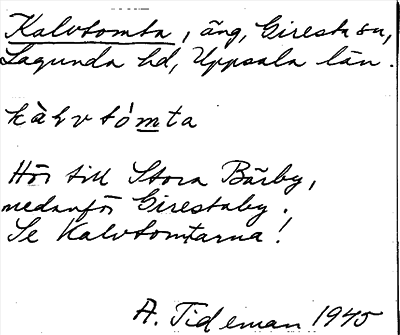 Kalvtomta, äng, Giresta sn,
Lagunda hd, Uppsala län.
kàlvtómta
Hör till Stora Bärby,
nedanför Girestaby.
Se Kalvtomtarna!
A. Tideman 1945